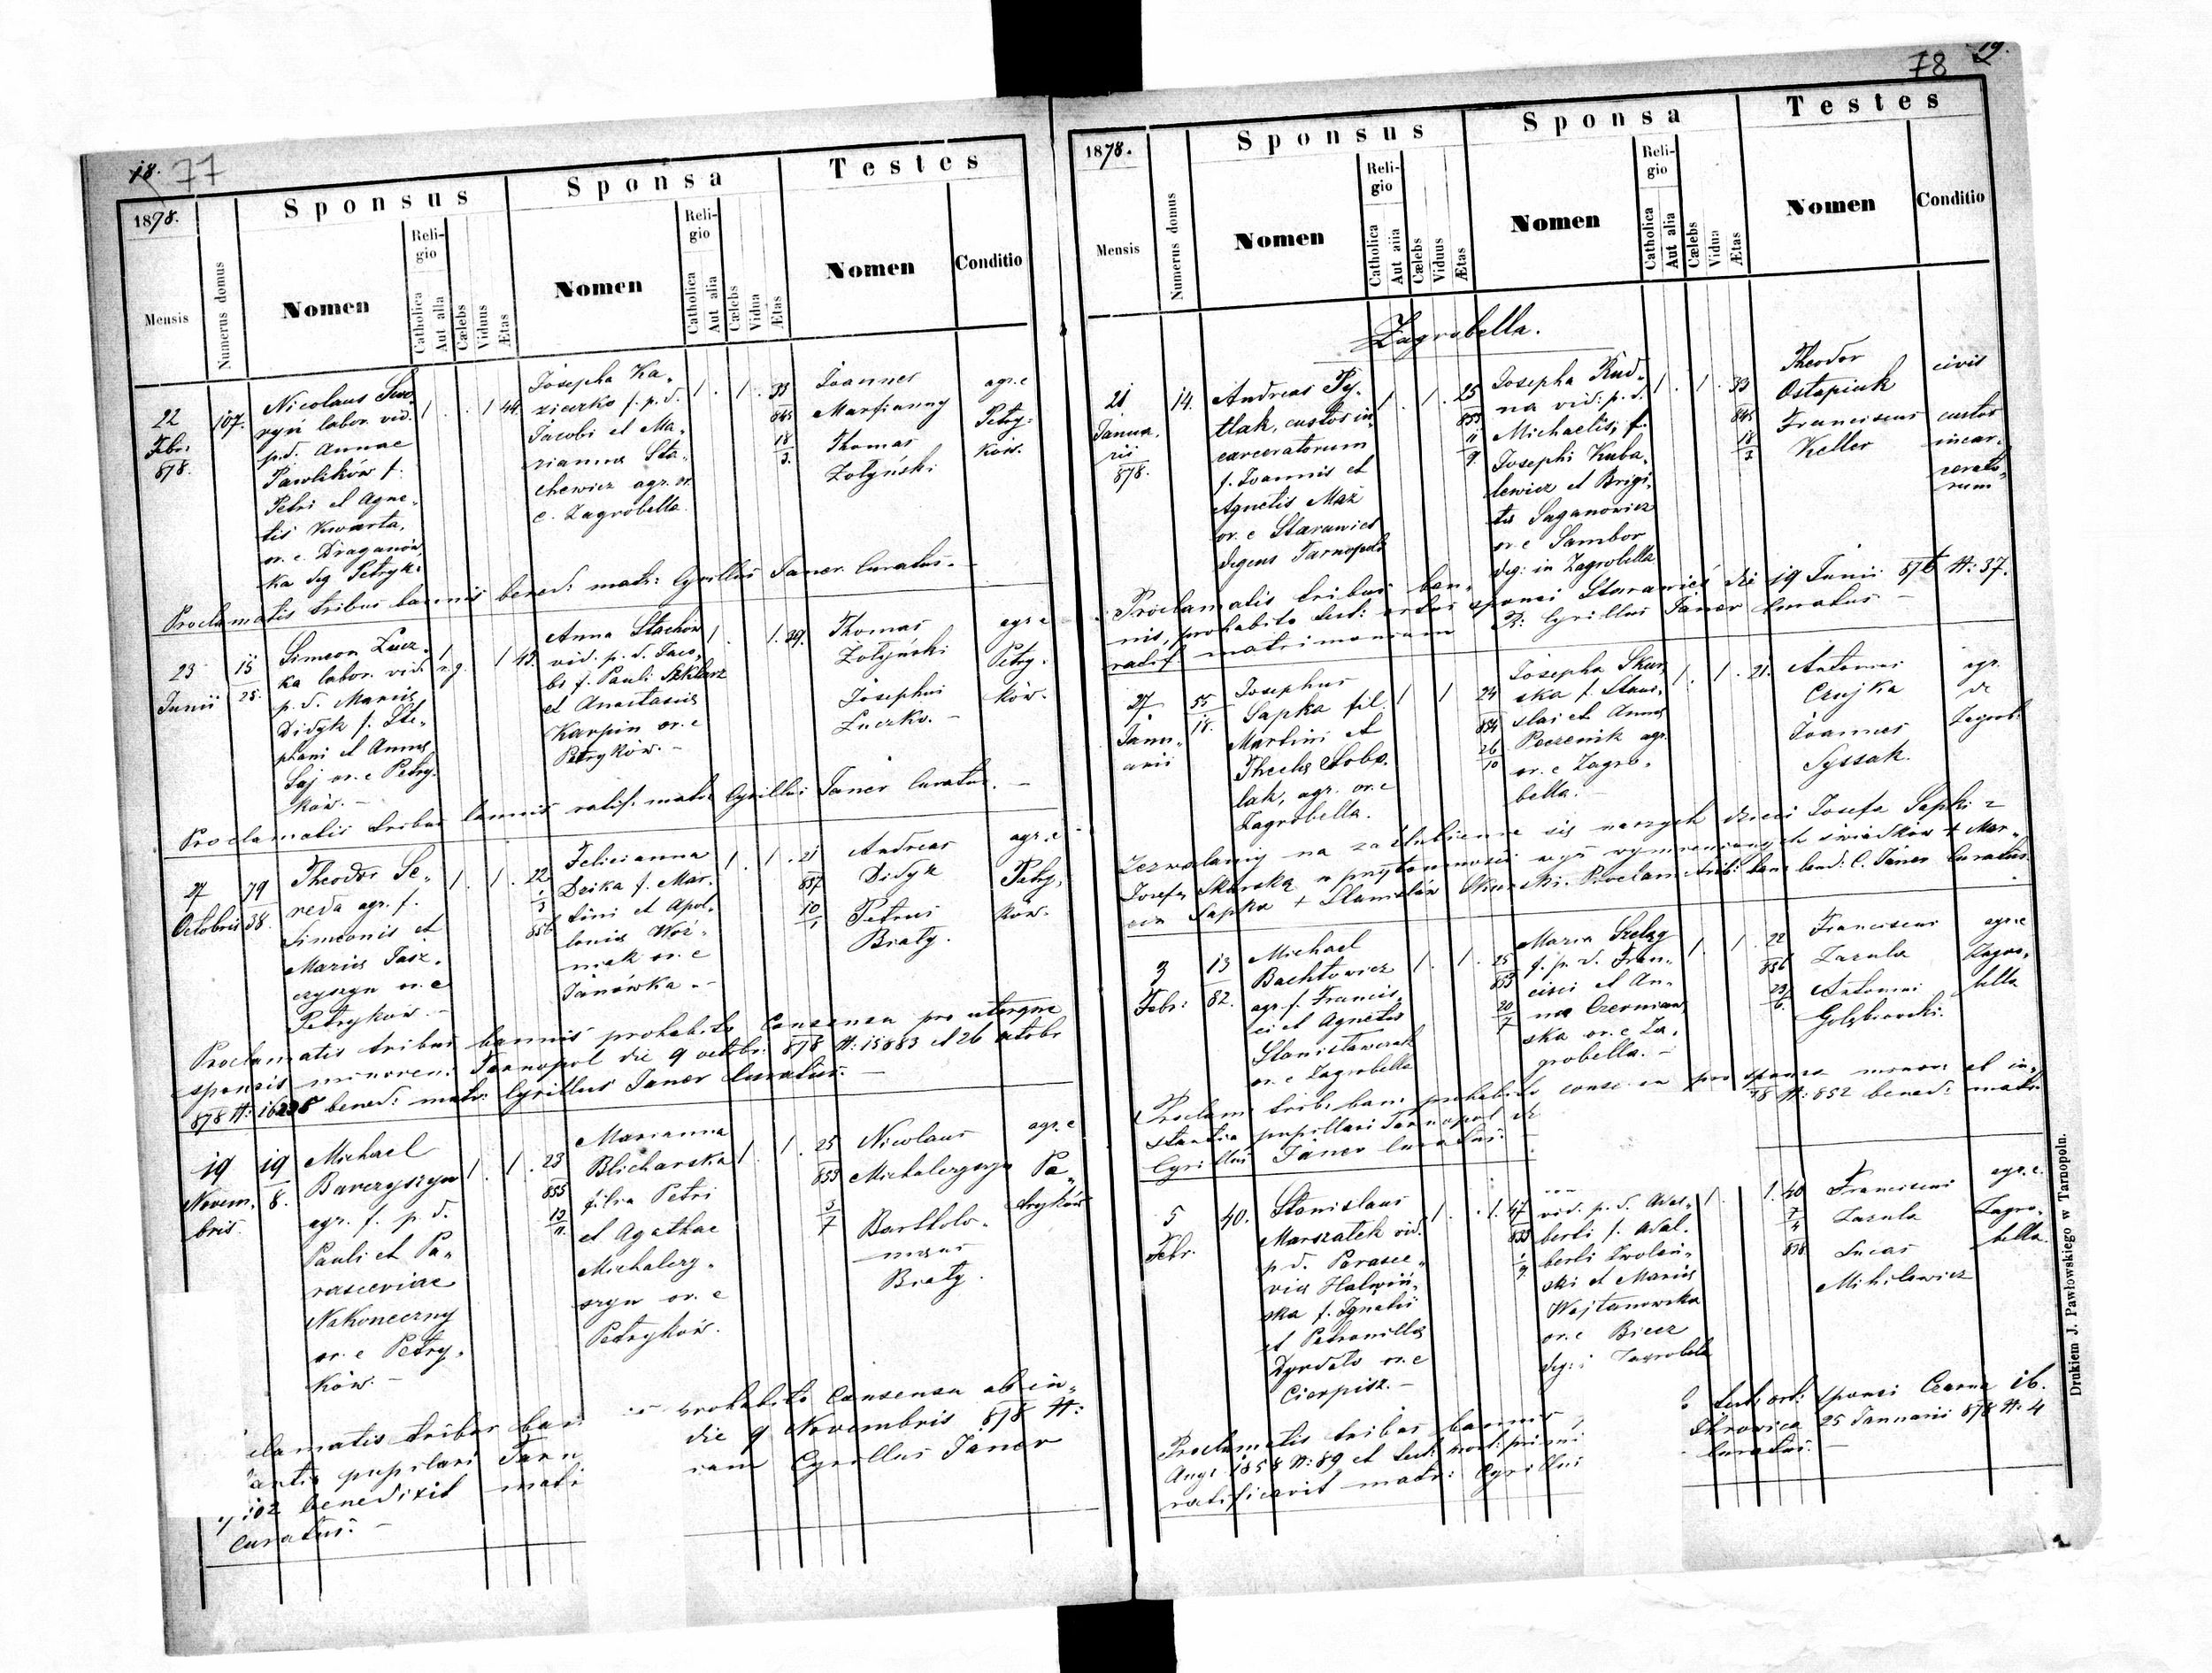 18. 77
1878.
Sponsus
Sponsa
Testes
Mensis
Numerus domus
Nomen
Religio
Catholica
Aut alia
Cælebs
Viduus
Ætas
Nomen
Religio
Catholica
Aut alia
Cælebs
Vidua
Ætas
Nomen
Conditio
22
Febr.
878.
107.
Nicolaus
labor. vid.
p. d. Annae
Pawlików f.
Petri et Agne-
tis Kwarta,
or. e Draganów
ka deg Petryk.
1 . . 1 44.
Josepha Ka-
zieczko f. p. d.
Jacobi et Ma-
rianna Sta-
chewicz agr. or.
e. Zagrobella.
1 . 1 . 33
845
18
3.
Joannes
Marfianny
Thomas
Zolyński
agr. e
Petry-
ków.
Proclamatis tribus bannis bened: matr: Cyrillus Janer Curatus. –
23
Junii
15
25.
Simeon Łucz-
ka labor. vid.
p. d. Mariæ
Didyk f. Ste-
phani et Annæ
Saj or. e Petry-
ków. –
1
r. g.
1 43.
Anna Stachów
vid. p. d. Jaco-
bi f. Pauli Szklarz
et Anastasiæ
Karpin or. e
Petryków. –
1 . 1. 39.
Thomas
Zolyński
Josephus
Łuczko. –
agr e
Petry-
ków.
Proclamatis tribus bannis ratif. matr. Cyrillus Janer Curatus. –
27
Octobris
79
38.
Theodor Se-
reda agr. f.
Simeonis et
Mariæ Jasz-
czyszyn or. e
Petryków. –
1 . 1 . 22
1
3
856
Felicianna
Dzika f. Mar-
tini et Apol-
loniæ Woź-
niak or. e
Janówka. –
1 . 1 . 21
857
10
1
Andreas
Didyk
Petrus
Biały.
agr. e
Petry-
ków.
Proclamatis tribus bannis prohabito Consensu pro utroque
sponsis minoren: Tarnopol die 9 octobr: 878 N: 15883 et 26 octobr
878 N: bened: matr: Cyrillus Janer Curatus. –
19
Novem-
bris.
19
8.
Michael
Barczyszyn
agr. f. p. d.
Pauli et Pa-
rasceviae
Nakonecrny
or. e Petry-
ków. –
1 . 1 . 23
855
13
11.
Marianna
Blicharska
filia Petri
et Agathae
Michalczy-
szyn or. e
Petryków.
1 . 1 . 25
853
3
7
Nicolaus
Michalczyszyn
Bartholo-
maus
Biały.
agr. e
Pe-
tryków
clamatis tribus ban rohabito Consensu ab in-
antia pupilari Tarn die 9 Novembris 878 N:
102 benedixit matr Cyrillus Janer
Curatus. –
78 19.
1878.
Sponsus
Sponsa
Testes
Mensis
Numerus domus
Nomen
Religio
Catholica
Aut alia
Cælebs
Viduus
Ætas
Nomen
Religio
Catholica
Aut alia
Cælebs
Vidua
Ætas
Nomen
Conditio
Zagrobella.
21
Janua-
rii
878.
14.
Andreas Py-
tlak, custos in-
carceratorum
f. Joannis et
Agnetis Maz
or. e Starawieś
degens Tarnopoli
1 . 1 . 25
853
11
9.
Josepha Rud-
na vid: p. d.
Michaelis, f.
Josephi Kuba-
lewicz et Brigi-
tæ Saganowicz
or. e Sambor
deg: in Zagrobella
1 . 1 . 33
845
18
3
Theodor
Ostapiuk
Franciscus
Keller
civis
custos
incar-
cerato-
rum
Proclamatis tribus ban-
nis, prohabito test: ortus sponsi Starawieś die 19 Junii 876 N: 37.
ratif. matrimonium R: Cyrillus Janer Curatus –
27
Janu-
arii
55
18.
Josephus
Sapka fil.
Martini et
Theclæ Sobo-
lak, agr. or. e
Zagrobella.
1 1 24
854
26
10
Josepha Skur-
ska f. Stani-
slai et Annæ
Peczenik agr.
or. e Zagro-
bella. –
1 . 1 . 21.
Antonius
Czujka
Joannes
Syssak.
agr.
de
Zagrob.
Zezwalamy na zaślubienie się naszych dzieci Josefa Sapki z
Josefą Skurską w przytomności wyż wymienionych świadków + Mar-
cin Sapka + Stanisław Skurski. Proclam. trib: ban: bend: C. Janer Curatus.
3
Febr:
13
82.
Michael
Bachtowicz
agr. f. Francis-
ci et Agnetis
Stanisławczuk
or. e Zagrobella
1. 1. 25
853
20
7
Maria Szeląg
f. p. d. Fran-
cisci et An-
na Czerniaw-
ska or. e Za-
grobella. –
1 . 1 . 22
856
29
6.
Franciscus
Zazula
Antonius
Gołębiowski.
agr. e
Zagro-
bella
Proclam: trib: ban: prohabito conse su pro sponsa minor: ab in-
stantia pupillari Tarnopol de 78 N: 852 bened: matr
Cyrillus Janer Curatus. –
5
Febr.
40.
Stanislaus
Marszałek vid.
p. d. Parasce-
viæ Halwin-
ska f. Ignatii
et Petronillæ
Dyrdałs or. e
Cierpisz. –
1 . . 1. 47
833
1
9.
vid. p. d. Adal-
berti f. Adal-
berti Zwolin-
ski et Mariæ
Wojtanowska
or. e Biecz
deg: i Zagrobela
1. 1. 40
7
4
838
Franciscus
Zazula
Lucas
Mihilewicz
agr. e.
Zagro-
bella.
Proclamatis tribus bannis, test: ort: sponsi Czarna 16.
Aug: 1858 N: 89 et test: mort: primi Ikrowica 25 Januarii 878 N: 4
ratificavit matr: Cyrillus Curatus. –
Drukiem J. Pawłowskiego w Tarnopolu.